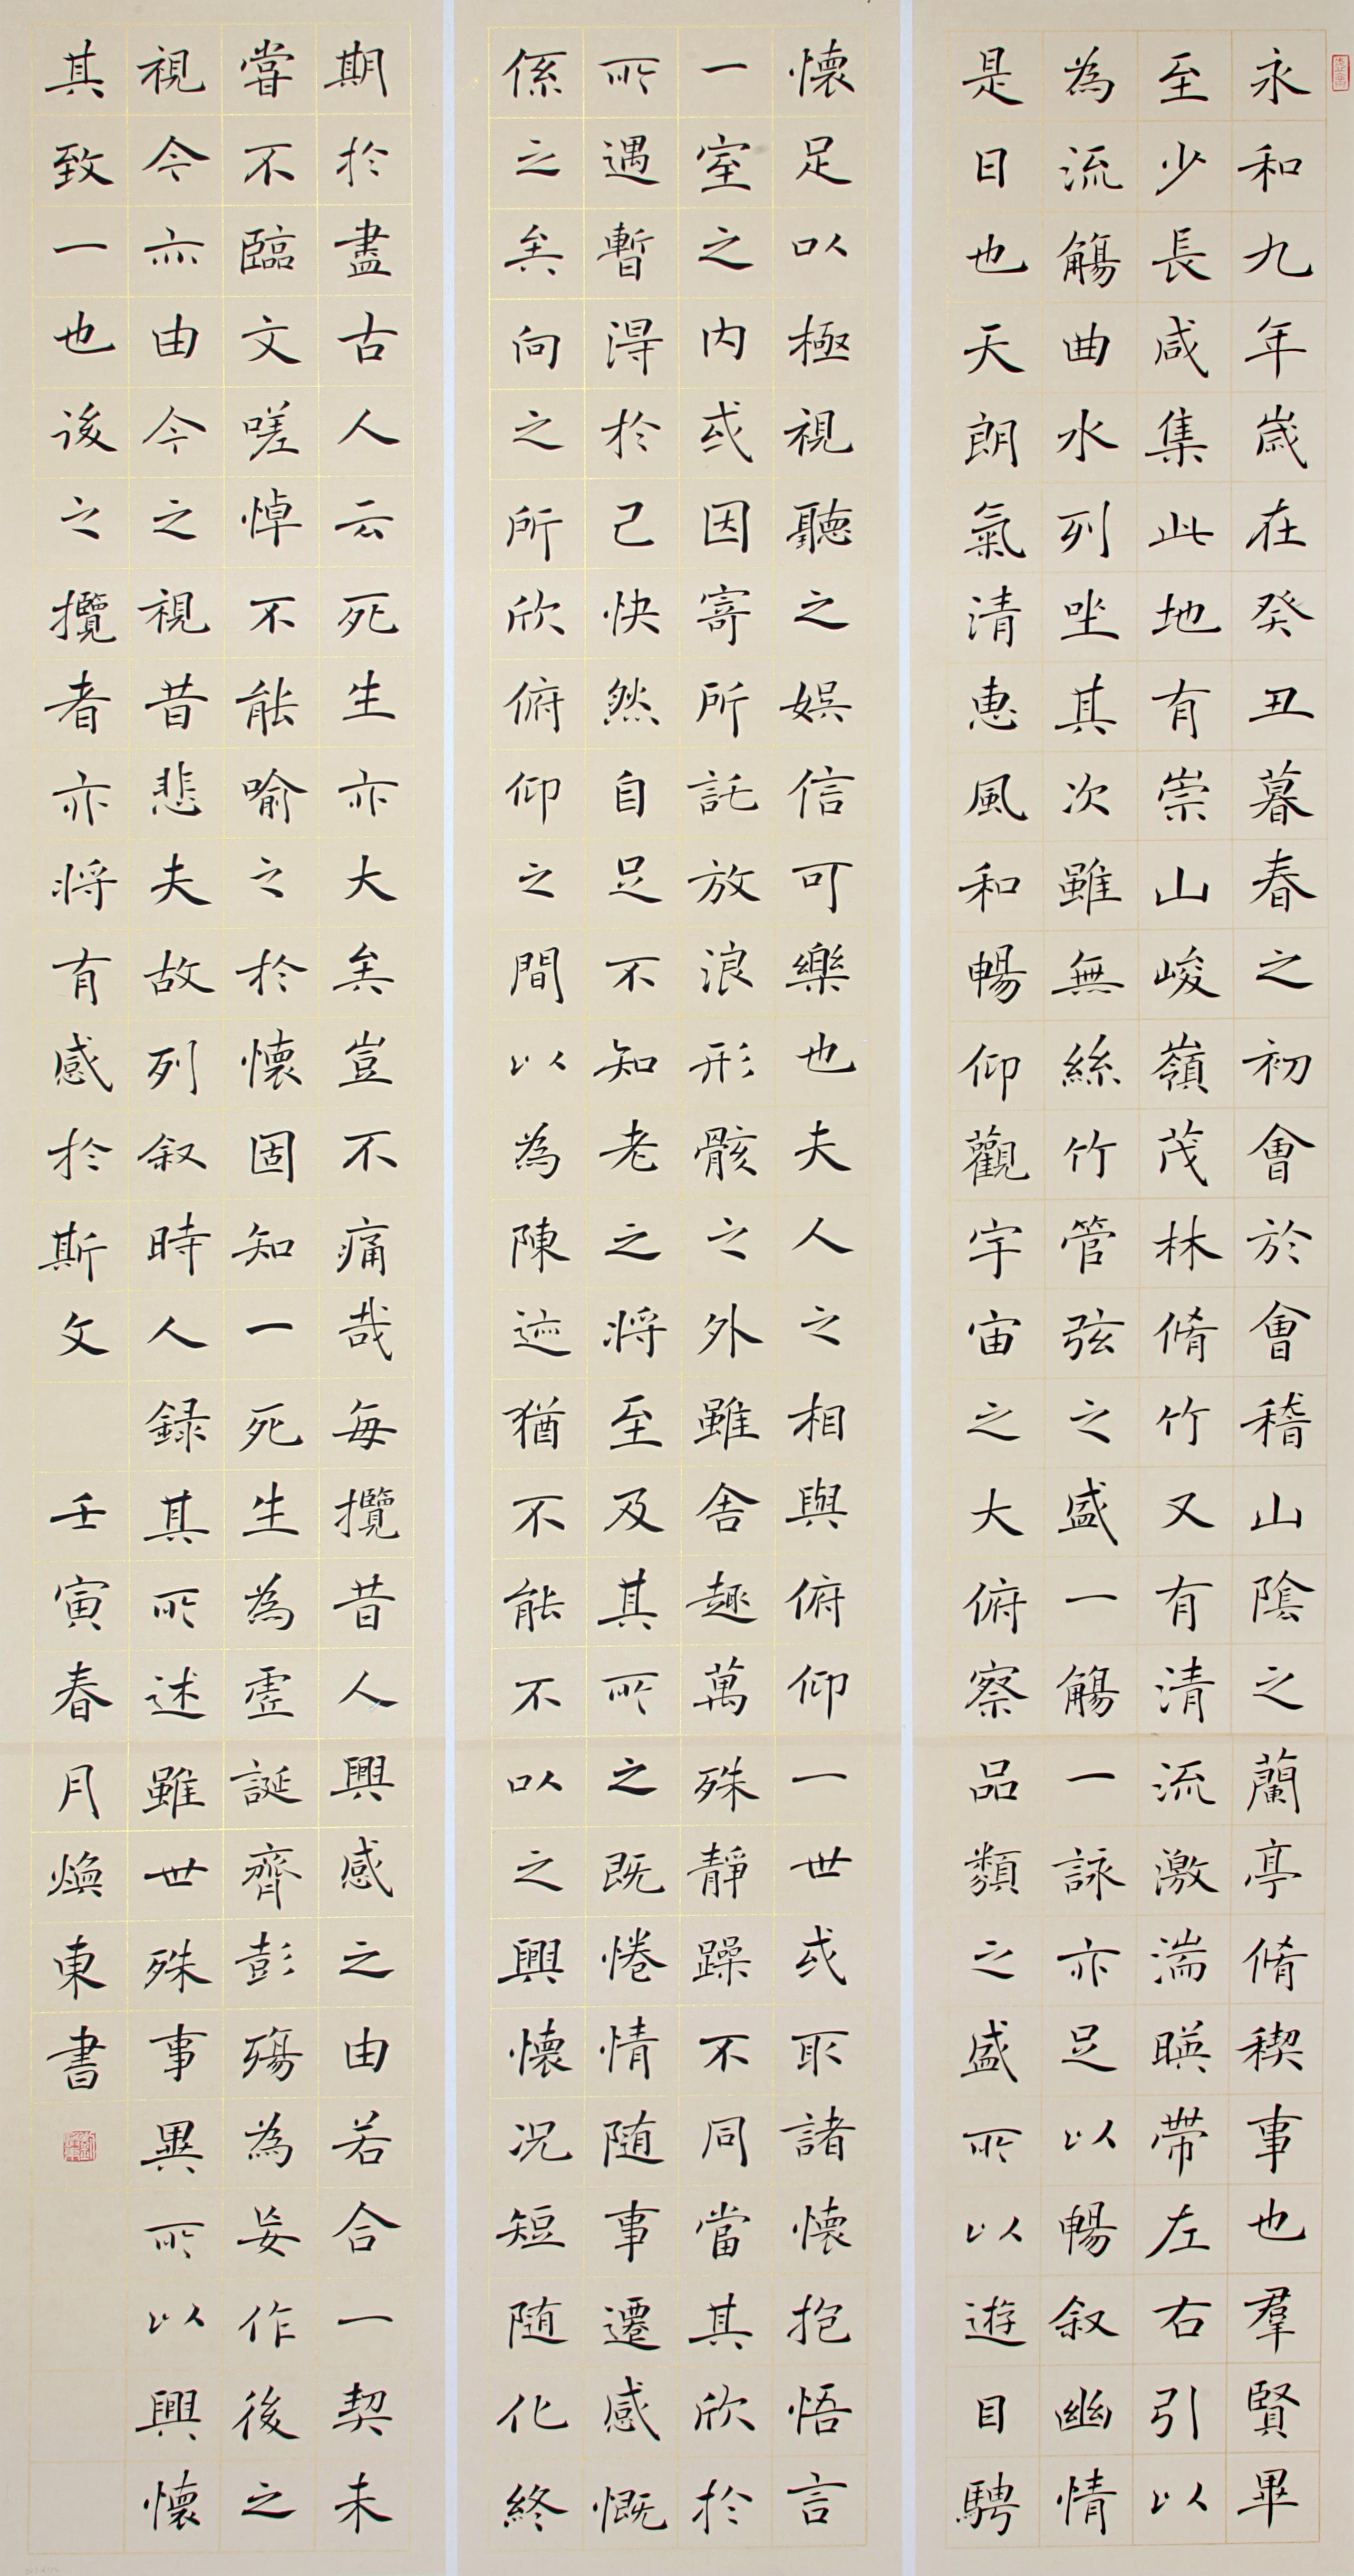 永和九年歲在癸丑暮春之初會於會稽山陰之蘭亭脩稧事也羣賢畢
至少長咸集此地有崇山峻嶺茂林脩竹又有清流激湍暎帶左右引以
為流觴曲水列坐其次雖無絲竹管弦之盛一觴一詠亦足以暢叙幽情
是日也天朗氣清惠風和暢仰觀宇宙之大俯察品類之盛所以遊目騁
懷足以極視聽之娛信可樂也夫人之相與俯仰一世或取諸懷抱悟言
一室之内或因寄所託放浪形骸之外雖舍趣萬殊靜躁不同當其欣於
所遇暫得於己快然自足不知老之将至及其所之既惓情随事遷感慨
係之矣向之所欣俯仰之間以為陳迹猶不能不以之興懷况短随化終
期於盡古人云死生亦大矣豈不痛哉每攬昔人興感之由若合一契未
嘗不臨文嗟悼不能喻之於懷固知一死生為虛誕齊彭殤為妄作後之
視今亦由今之視昔悲夫故列叙時人録其所述雖世殊事異所以興懷
其致一也後之攬者亦将有感於斯文 壬寅春月煥東書